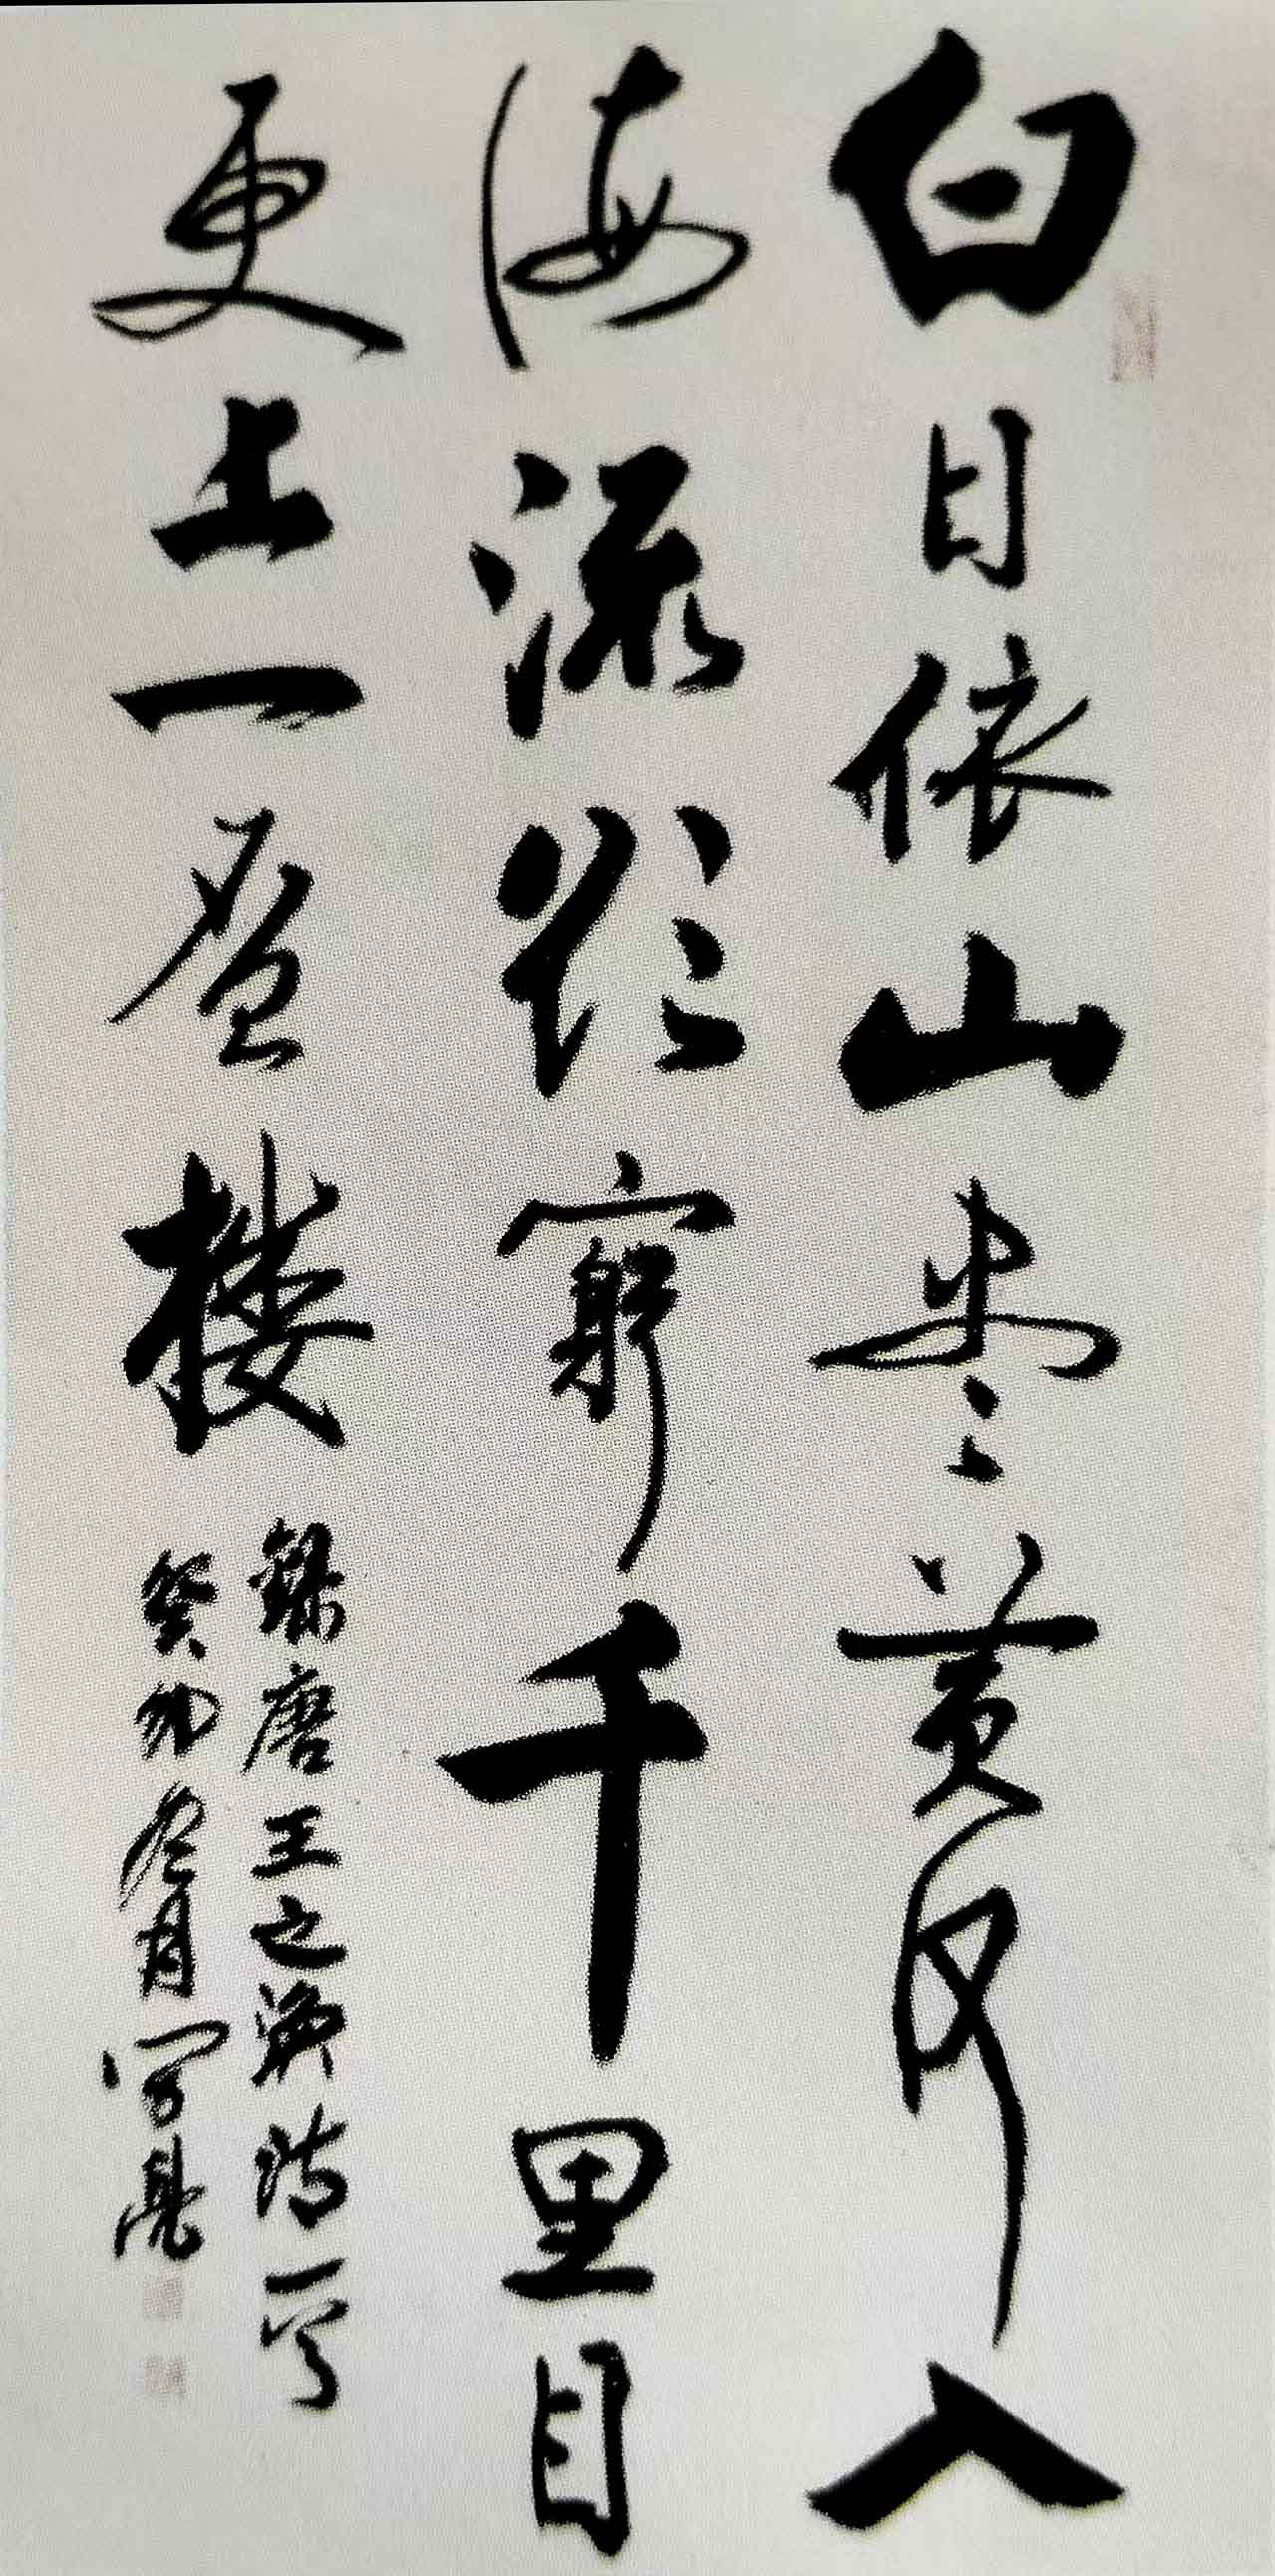 白日依山尽黄河入
海流欲窮千里目
更上一层楼
錄唐王之渙詩一首
癸卯冬月寫亮